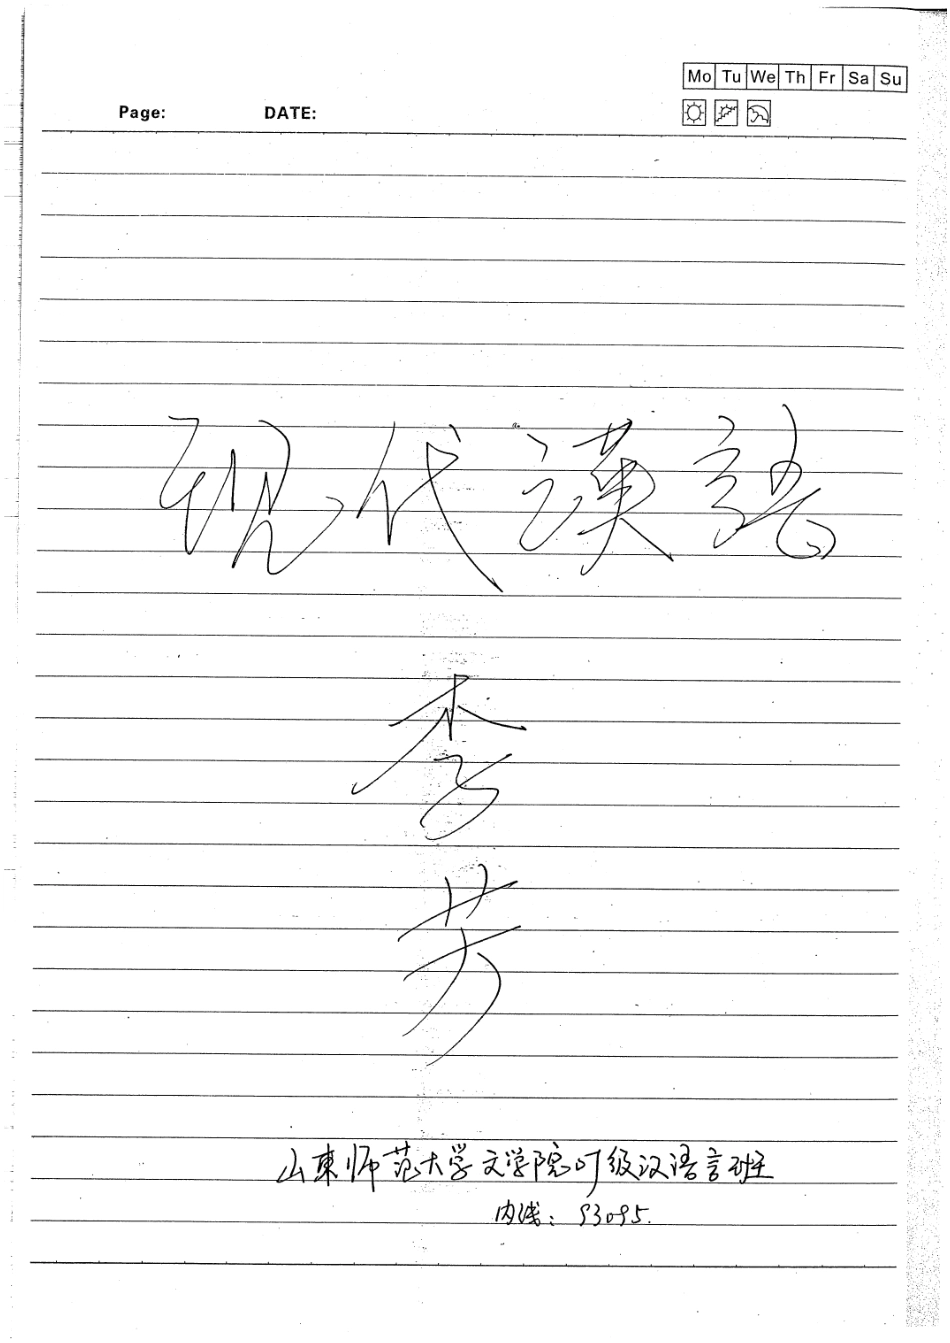 Mo Tu We Th Fr Sa Su
Page: DATE:
现代漢語
李
芳
山東师范大学文学院01级汉语言班
内线：93095.